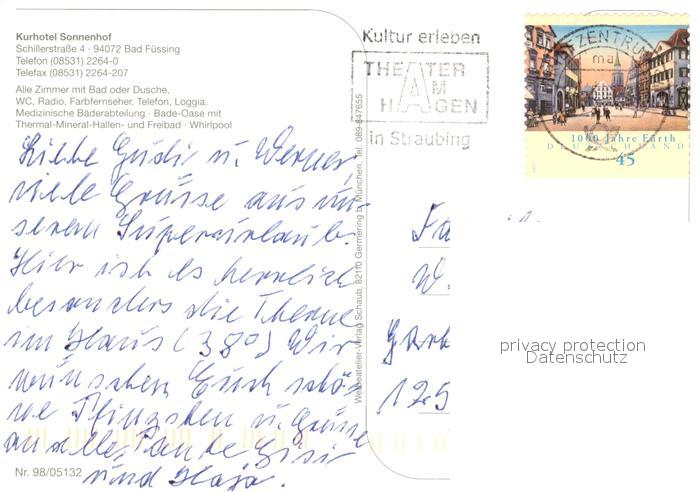 Kurhotel Sonnenhof
Schillerstraße 4 · 94072 Bad Füssing
Telefon (08531) 2264-0
Telefax (08531) 2264-207
Alle Zimmer mit Bad oder Dusche,
WC, Radio, Farbfernseher, Telefon, Loggia.
Medizinische Bäderabteilung · Bade-Oase mit
Thermal-Mineral-Hallen- und Freibad · Whirlpool
Liebe Gudi u. Werner,
viele Grüsse aus un-
serem Superurlaub.
Hier ist es herrlich
besonders die Therme
im Haus (38°) Wir
wünschen Euch schö-
ne Pfingsten u. Grüsse
an alle, Tante Gisi
und
Nr. 98/05132
Werbeatelier-Verlag Schaub, 82110 Germering b. München, Tel. 089-847655
Kultur erleben
THEATER
AM
HAGEN
in Straubing
BRIEFZENTRUM
1000 Jahre Fürth
DEUTSCHLAND
45
Fa
W.
125
privacy protection
Datenschutz